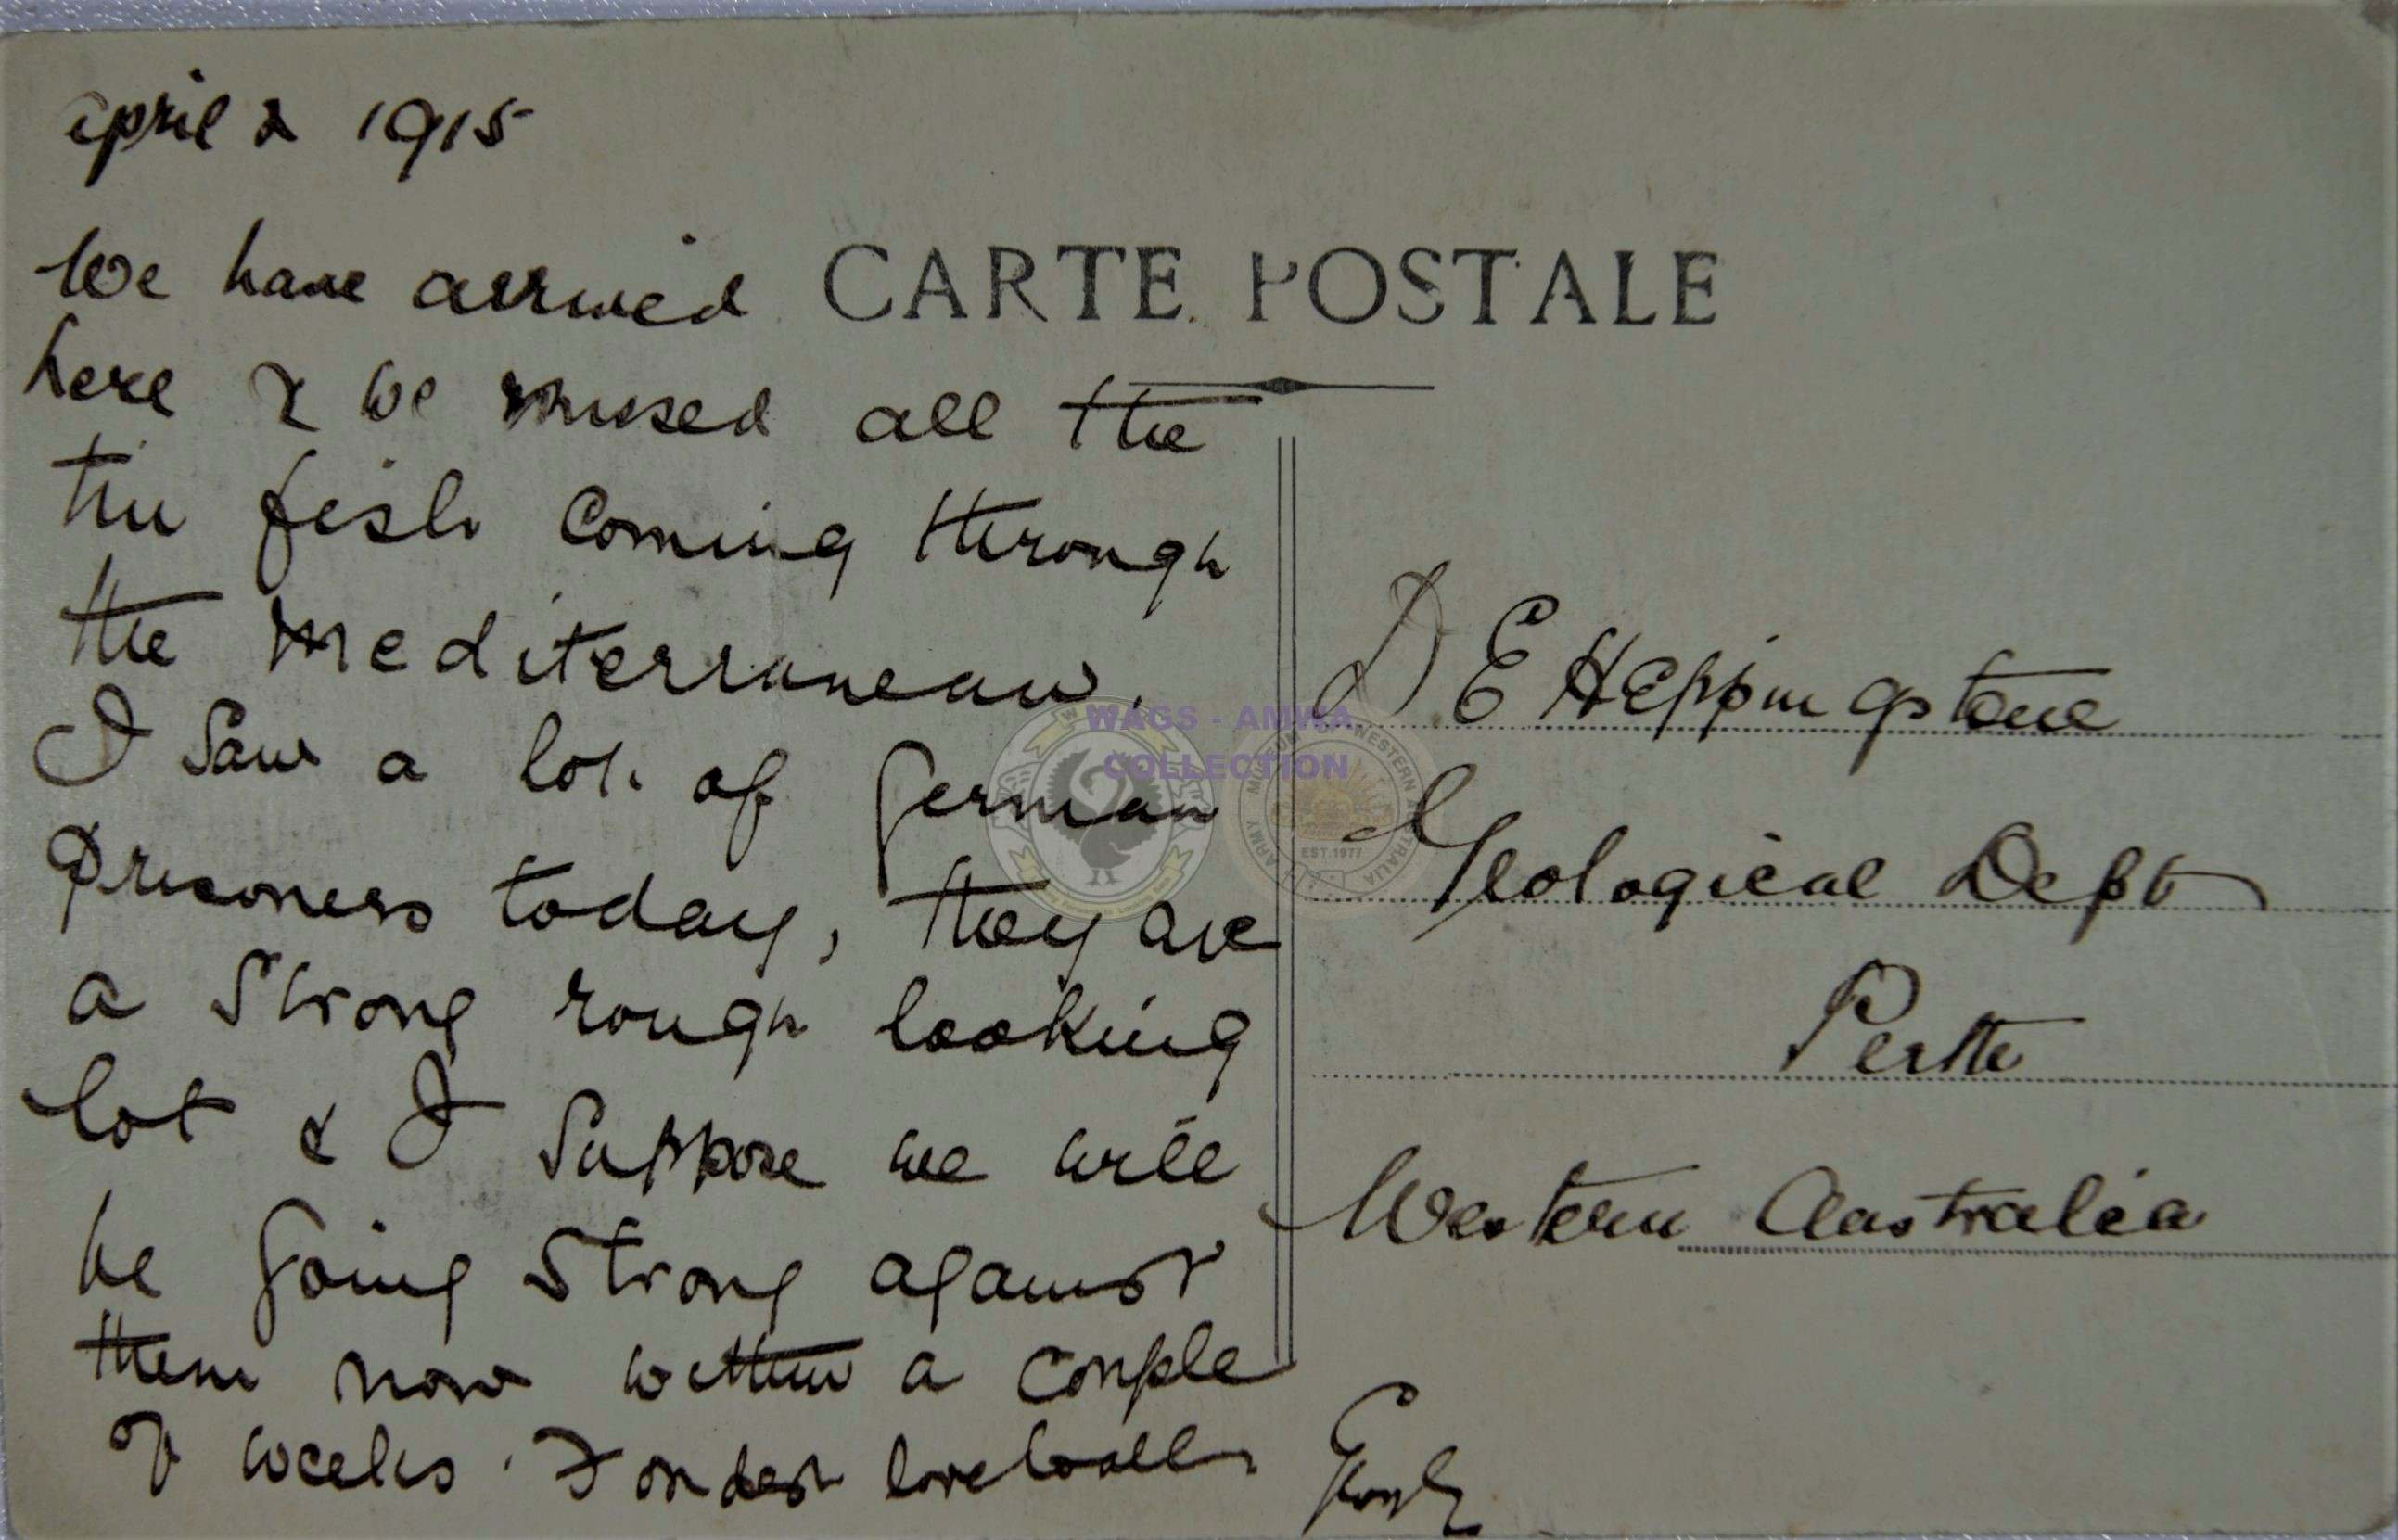 april 2 1915
We have arrived
here & we missed all the
tin fish coming through
the Mediterranean.
I saw a lot of German
prisoners today, they are
a strong rough looking
lot & I suppose we will
be going strong against
them now within a couple
of weeks. Fondest love to all
CARTE POSTALE
D E Heppingstone
Geological Dept
Perth
Western Australia
WAGS - AMWA
COLLECTION
EST.1977